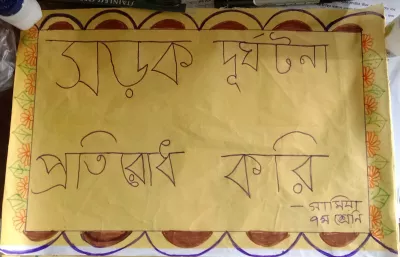 সড়ক দূর্ঘটনা
প্রতিরোধ করি
– সামিয়া
৭ম শ্রেনি